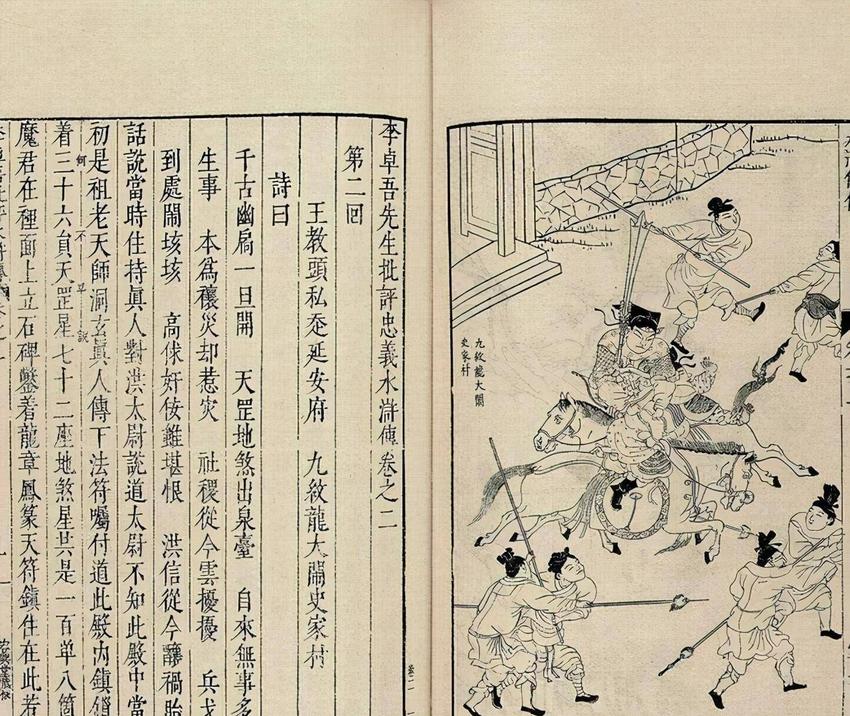 九紋龍大鬧
史家村
李卓吾先生批評忠義水滸傳卷之二
第二回
王教頭私走延安府　九紋龍大鬧史家村
詩曰
千古幽扃一旦開　天罡地煞出泉臺　自來無事多
生事　本爲禳災却惹災　社稷從今雲擾擾　兵戈
到處鬧垓垓　高俅奸佞雖堪恨　洪信從今釀禍胎
話說當時住持眞人對洪太尉說道太尉不知此殿中當
初是祖老天師洞玄眞人傳下法符囑付道此殿內鎮鎖
何不早說
着三十六員天罡星七十二座地煞星共是一百單八箇
魔君在裡面上立石碑鑿着龍章鳳篆天符鎮住在此若